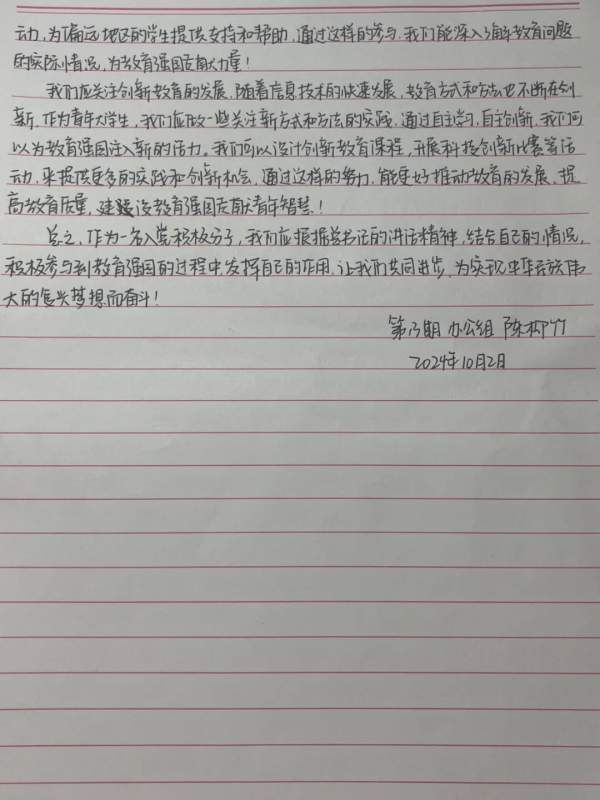 动，为偏远地区的学生提供支持和帮助，通过这样的参与，我们能深入了解教育问题
的实际情况，为教育强国贡献力量！
我们应关注创新教育的发展，随着信息技术的快速发展，教育方式和方法也不断在创
新，作为青年大学生，我们应做一些关注新方式和方法的实践，通过自主学习，自主创新，我们可
以为教育强国注入新的活力。我们可以设计创新教育课程，开展科技创新比赛等活
动，来提供更多的实践和创新机会，通过这样的努力，能更好推动教育的发展，提
高教育质量，建设教育强国贡献青年智慧！
总之，作为一名入党积极分子，我们应根据总书记的讲话精神，结合自己的情况，
积极参与到教育强国的过程中，发挥自己的作用，让我们共同进步，为实现中华民族伟
大的复兴梦想而奋斗！
第13期 办公组 陈柳
2024年10月2日